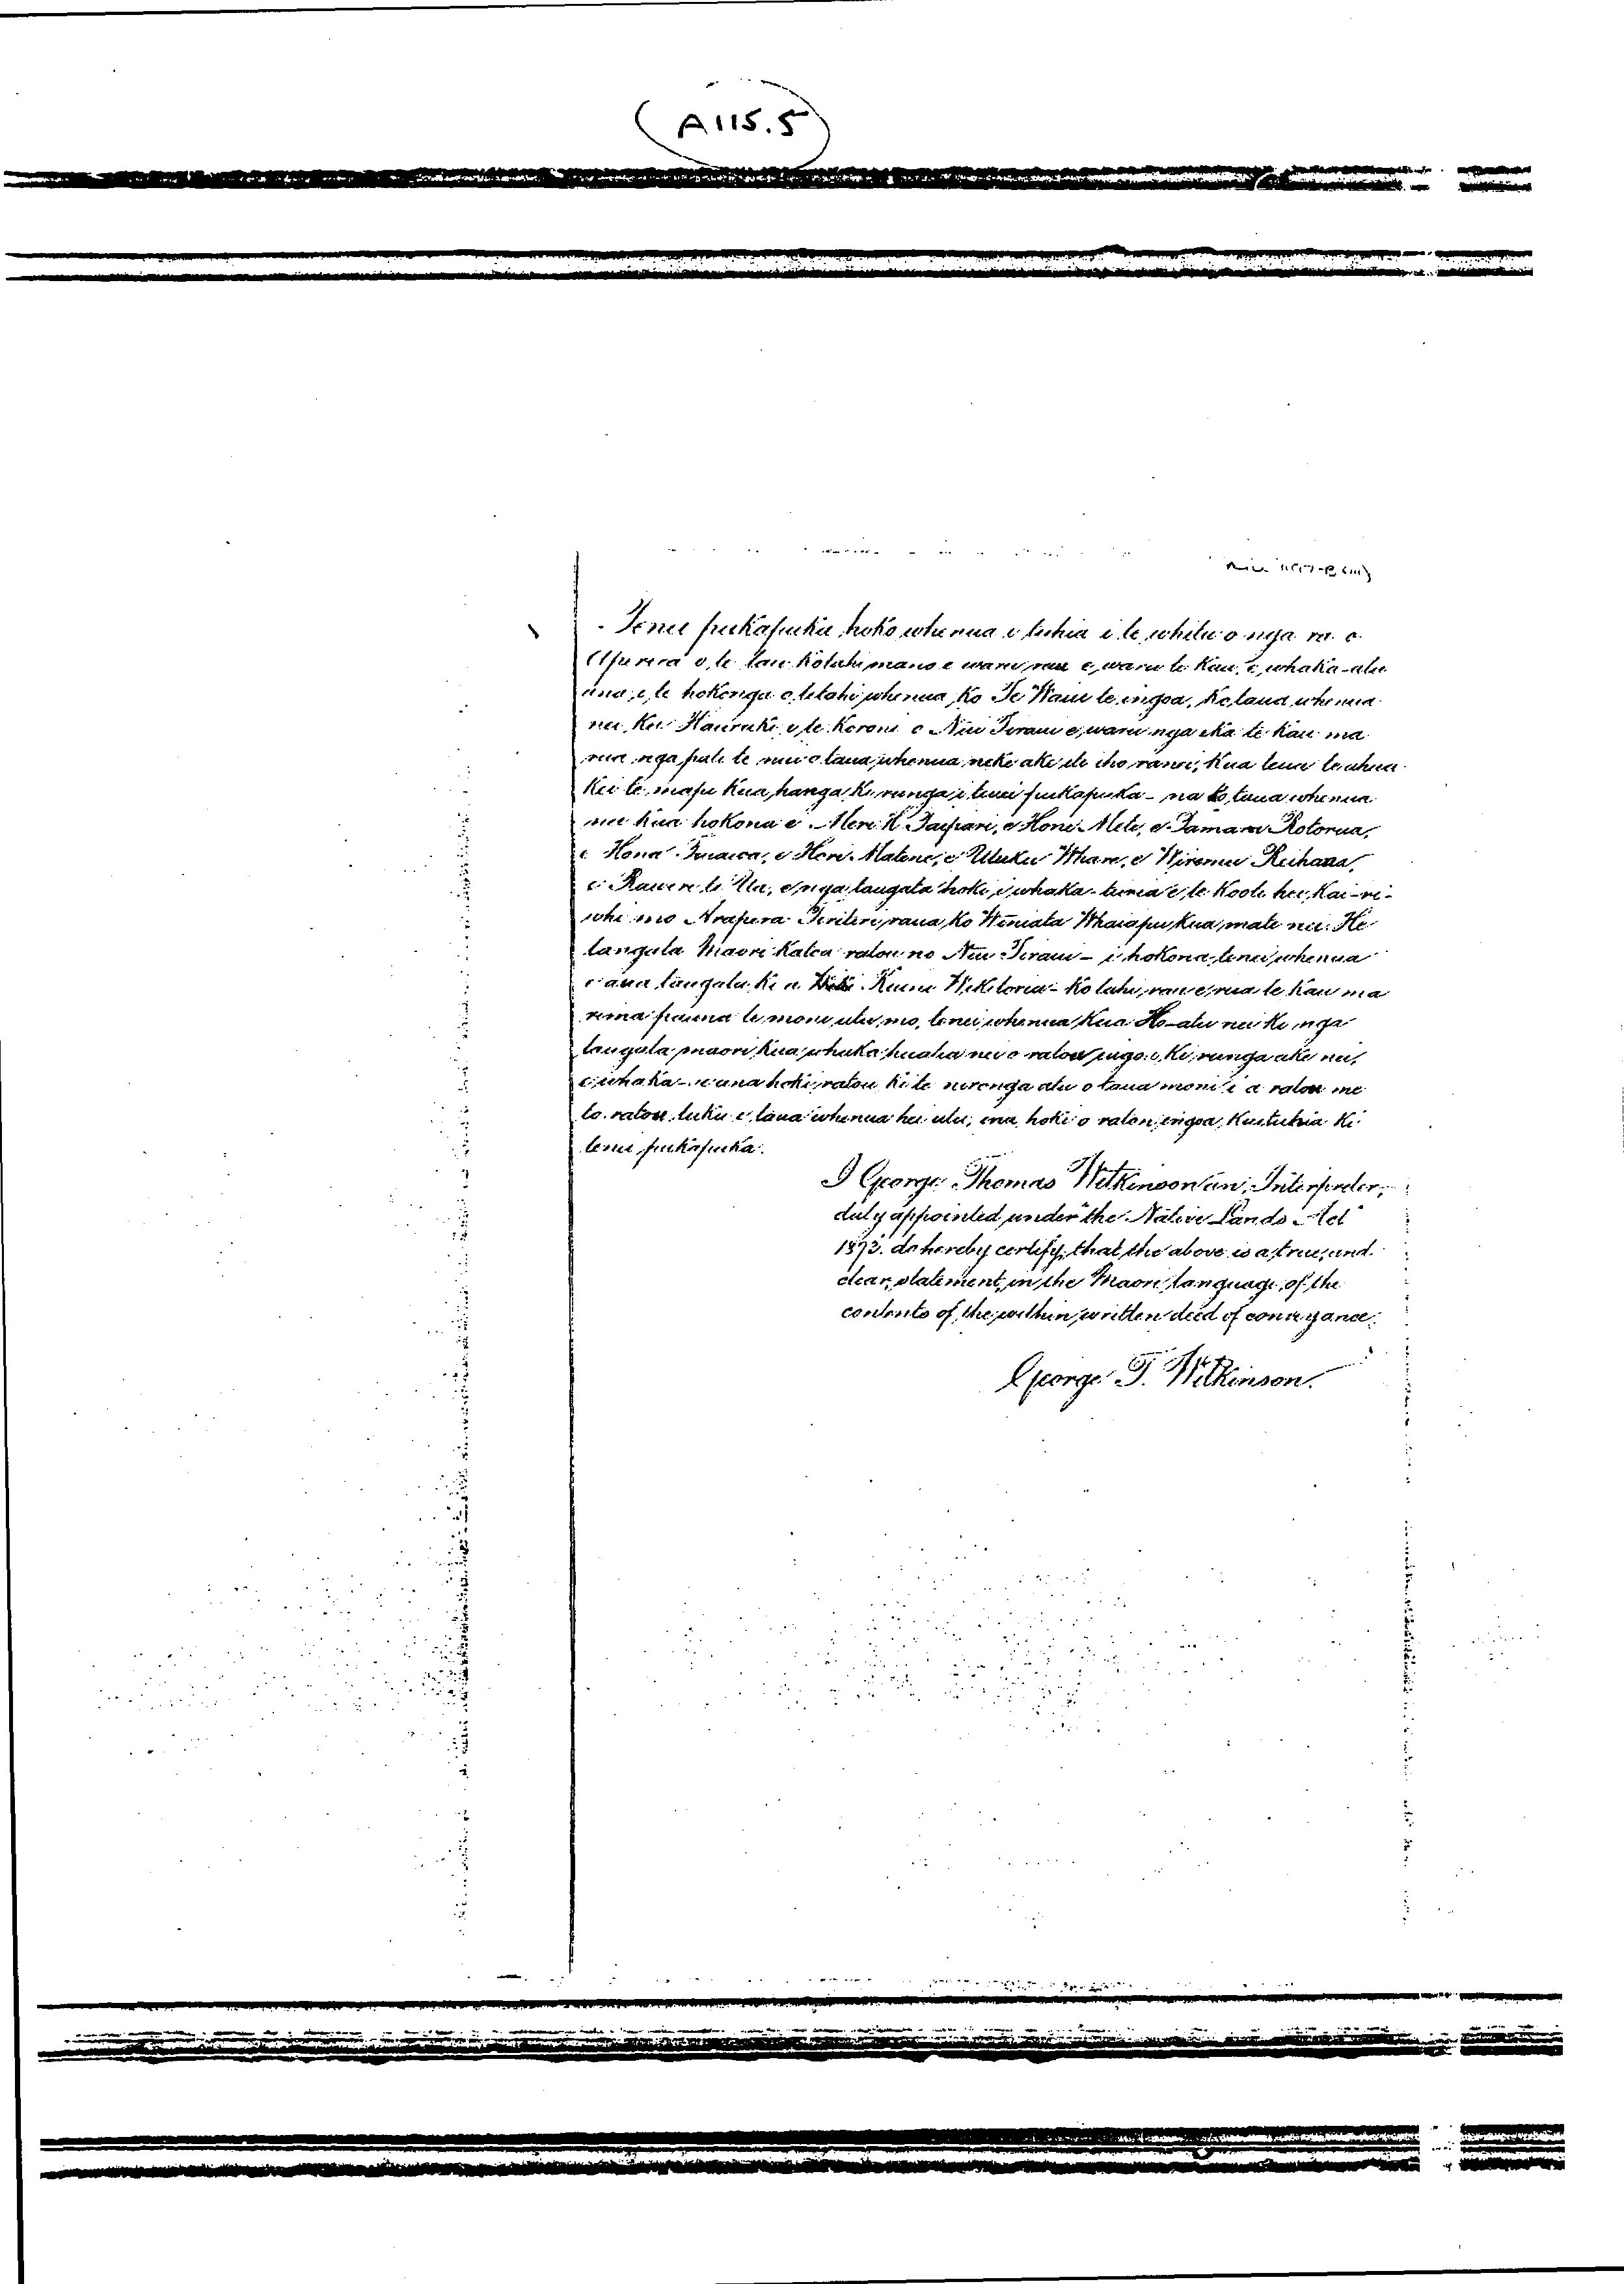 A115.5
Tenei pukapuka hoko whenua i tuhia i te whitu o nga ra o
Apirira o te tau kotahi mano e waru rau e waru te kau, e whaka-atu
ana i te hokonga o tetahi whenua, ko Te Wain te ingoa, ko taua whenua
nei kei Hauraki i te Koroni o Niu Tirani e waru nga eka te kau ma
rua nga pate te nui o taua whenua neke ake iti iho ranei, kua tuia te ahua
kei te mapi kua hanga ki runga i tenei pukapuka - na ko taua whenua
nei kua hokona e Mere K Taipari, e Honi Mete, e Tamara Rotorua,
e Hona e Hori Matene, e Utuku e Wiremu Reihana,
e Raueru te Ua, e nga tangata hoki i whaka-turia e te Kooti hei Kai-ri-
whi mo Arapera Tiritiri raua ko Winiata Whaiapu kua mate nei. He
tangata Maori katoa ratou no Niu Tirani - i hokona tenei whenua
e aua tangata ki a Kuini Wikitoria - Ko tahi rau e rua te kau ma
rima pauna te moni utu mo tenei whenua kua Ho-atu nei ki nga
tangata maori kua whaka huatia nei o ratou ingoa ki runga ake nei,
e whaka-ae ana hoki ratou ki te rironga atu o taua moni i a ratou me
to ratou tuku i taua whenua hei utu, ina hoki o ratou ingoa kua tuhia ki
tenei pukapuka.
I George Thomas Wilkinson an Interpreter,
duly appointed under the Native Lands Act
1873. do hereby certify that the above is a true and
clear statement in the Maori language of the
contents of the within written deed of conveyance.
George T. Wilkinson.